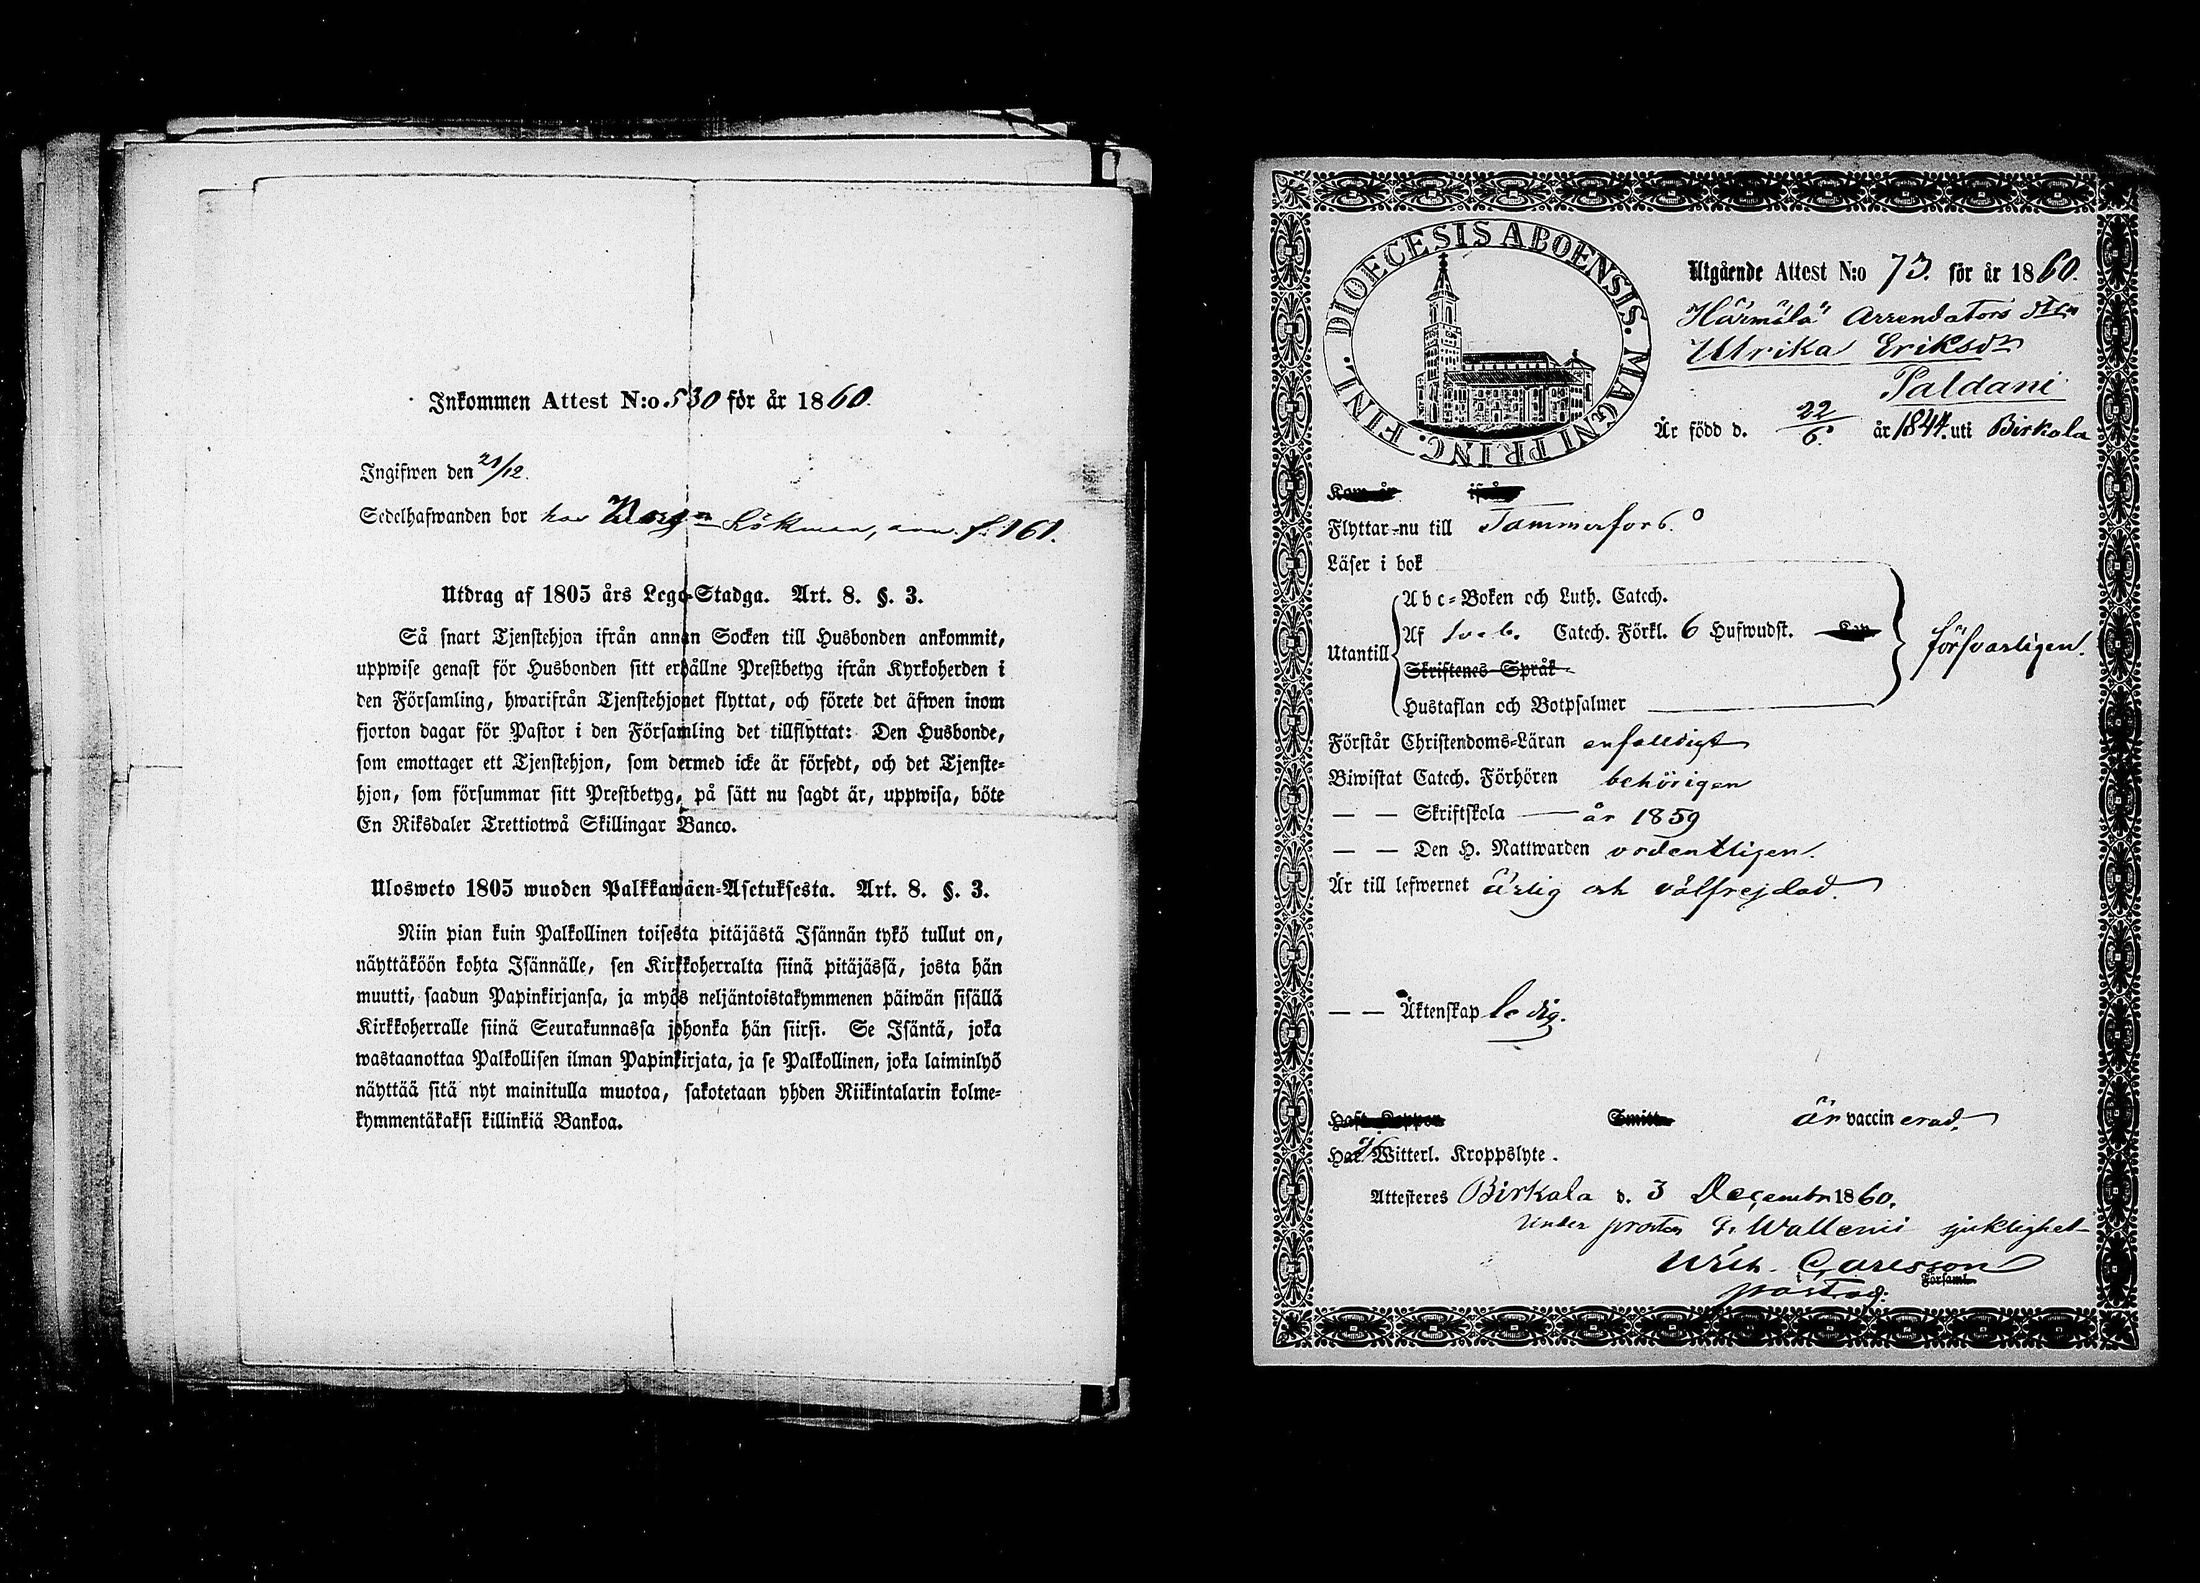 Inkommen Attest N:o 530 för år 1860.
Ingifwen den 21/12.
Sedelhafwanden bor hos Borg:n Lökman, ann. f. 161.
Utdrag af 1805 års Lego-Stadga. Art. 8. §. 3.
Så snart Tjenstehjon ifrån annan Socken till Husbonden ankommit,
uppwise genast för Husbonden sitt erhållne Prestbetyg ifrån Kyrkoherden i
den Församling, hwarifrån Tjenstehjonet flyttat, och förete det äfwen inom
fjorton dagar för Pastor i den Församling det tillflyttat: Den Husbonde,
som emottager ett Tjenstehjon, som dermed icke är försedt, och det Tjenste-
hjon, som försummar sitt Prestbetyg, på sätt nu sagdt är, uppwisa, böte
En Riksdaler Trettiotwå Skillingar Banco.
Ulosweto 1805 wuoden Palkkawäen-Asetuksesta. Art. 8. §. 3.
Niin pian kuin Palkollinen toisesta pitäjästä Isännän tykö tullut on,
näyttäköön kohta Isännälle, sen Kirkkoherralta siinä pitäjässä, josta hän
muutti, saadun Papinkirjansa, ja myös neljäntoistakymmenen päiwän sisällä
Kirkkoherralle siinä Seurakunnassa johonka hän siirsi. Se Isäntä, joka
wastaanottaa Palkollisen ilman Papinkirjata, ja se Palkollinen, joka laiminlyö
näyttää sitä nyt mainitulla muotoa, sakotetaan yhden Riikintalarin kolme-
kymmentäkaksi killinkiä Bankoa.
DIOECESIS ABOENSIS. MAGNI PRINC. FINL.
Utgående Attest N:o 73. för år 1860.
Härmälä Arrendators
Ulrika Eriksdr
Paldani
Är född d. 22/6. år 1844. uti Birkala
Kom år ifrån
Flyttar nu till Tammerfors.
Läser i bok
Abc-Boken och Luth. Catech.
Utantill Af Sveb. Catech. Förkl. 6 Hufwudst. Kap försvarligen.
Skriftenes Språk
Hustaflan och Botpsalmer
Förstår Christendoms-Läran enfaldigt
Biwistat Catech. Förhören behörigen
— — Skriftskola — år 1859
— — Den H. Nattwarden ordentligen.
Är till lefwernet ärlig och välfrejdad.
— — Äktenskap ledig.
Haft Koppor Smitto är vaccinerad.
Har ej Witterl. Kroppslyte.
Attesteres Birkala d. 3 December 1860.
Under prosten G. Wallenii sjuklighet
Wilh. Carlsson
Församl.